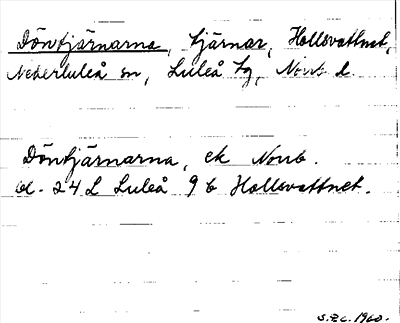 Döntjärnarna, tjärnar, Hallsvattnet,
Nederluleå sn, Luleå tg, Norrb. l.
Döntjärnarna, ek Norrb.
bl. 24 L Luleå 9 b Hallsvattnet.
S.E.C. 1960.